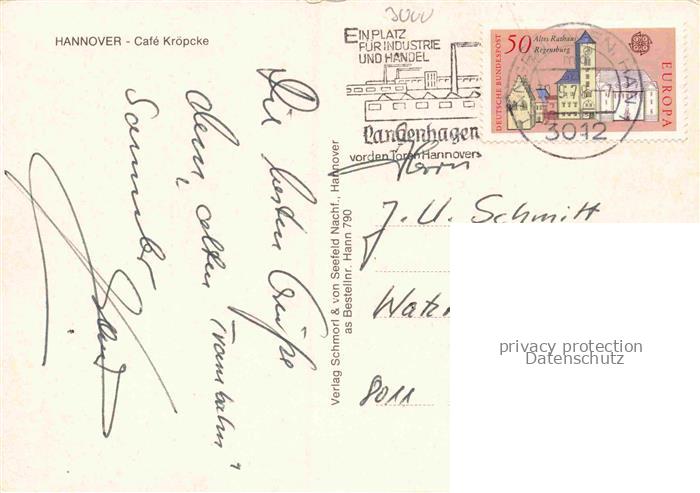 3000
HANNOVER - Café Kröpcke
EIN PLATZ
FÜR INDUSTRIE
UND HANDEL
Langenhagen
vor den Toren Hannovers
DEUTSCHE BUNDESPOST
50 Altes Rathaus
Regensburg
EUROPA
3012
Die besten Grüße
dem „alten Trambahn“
Sammler
Verlag Schmorl & von Seefeld Nachf., Hannover
as Bestellnr. Hann 790
Herrn
J. U. Schmitt
8011
privacy protection
Datenschutz